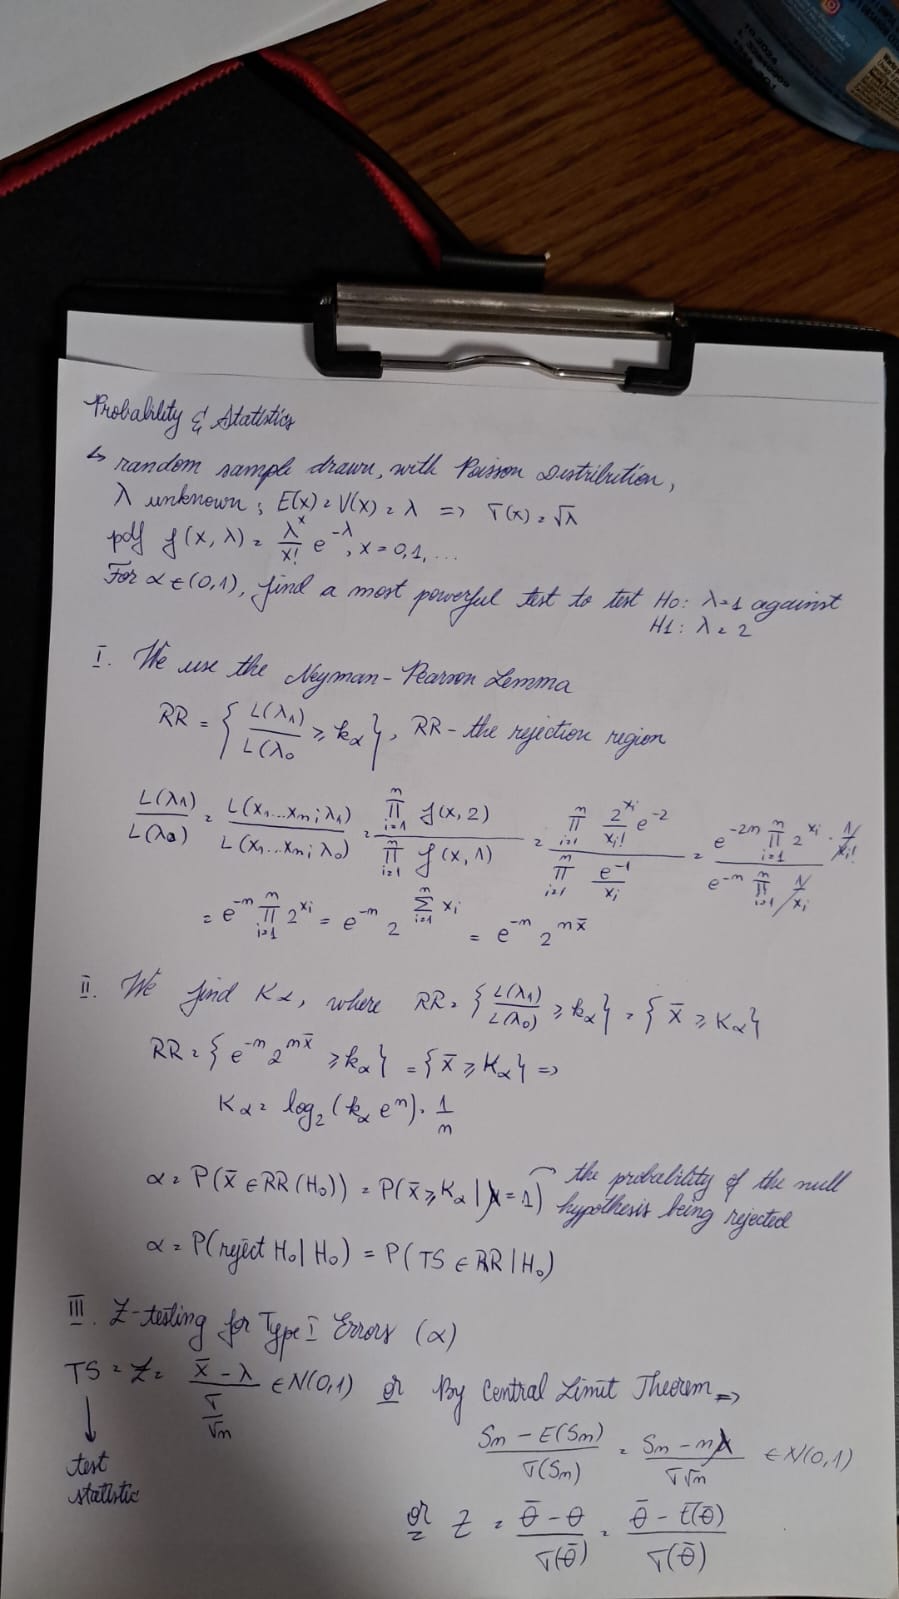 Probability & Statistics
↳ random sample drawn, with Poisson Distribution,
λ unknown; E(x) = V(x) = λ => σ(x) = √λ
pdf f(x, λ) = λ^x/x! e^-λ, x = 0,1,...
For α ∈ (0,1), find a most powerful test to test H0: λ=1 against
H1: λ = 2
I. We use the Neyman-Pearson Lemma
RR = { L(λ1)/L(λ0 ≥ kα }, RR - the rejection region
L(λ1)/L(λ0) = L(x1...xn; λ1)/L(x1...xn; λ0) = ∏_{i=1}^n f(x,2) / ∏_{i=1}^n f(x,1) = ∏_{i=1}^n 2^xi/xi! e^-2 / ∏_{i=1}^n e^-1/xi = e^-2n ∏_{i=1}^n 2^xi · 1/xi! / e^-n ∏_{i=1}^n 1/xi
= e^-n ∏_{i=1}^n 2^xi = e^-n 2^{∑_{i=1}^n xi} = e^-n 2^{n x̄}
II. We find Kα, where RR = { L(λ1)/L(λ0) ≥ kα } = { x̄ ≥ Kα }
RR = { e^-n 2^{n x̄} ≥ kα } = { x̄ ≥ Kα } =>
Kα = log₂ (kα e^n) · 1/n
α = P(x̄ ∈ RR (H0)) = P(x̄ ≥ Kα | λ = 1) the probability of the null
hypothesis being rejected
α = P(reject H0 | H0) = P(TS ∈ RR | H0)
III. Z-testing for Type I Errors (α)
TS = Z = x̄ - λ / σ/√n ∈ N(0,1) or By Central Limit Theorem =>
↓
test
statistic
Sn - E(Sn) / σ(Sn) = Sn - nλ / σ√n ∈ N(0,1)
or Z = θ̄ - θ / σ(θ̄) = θ̄ - E(θ̄) / σ(θ̄)